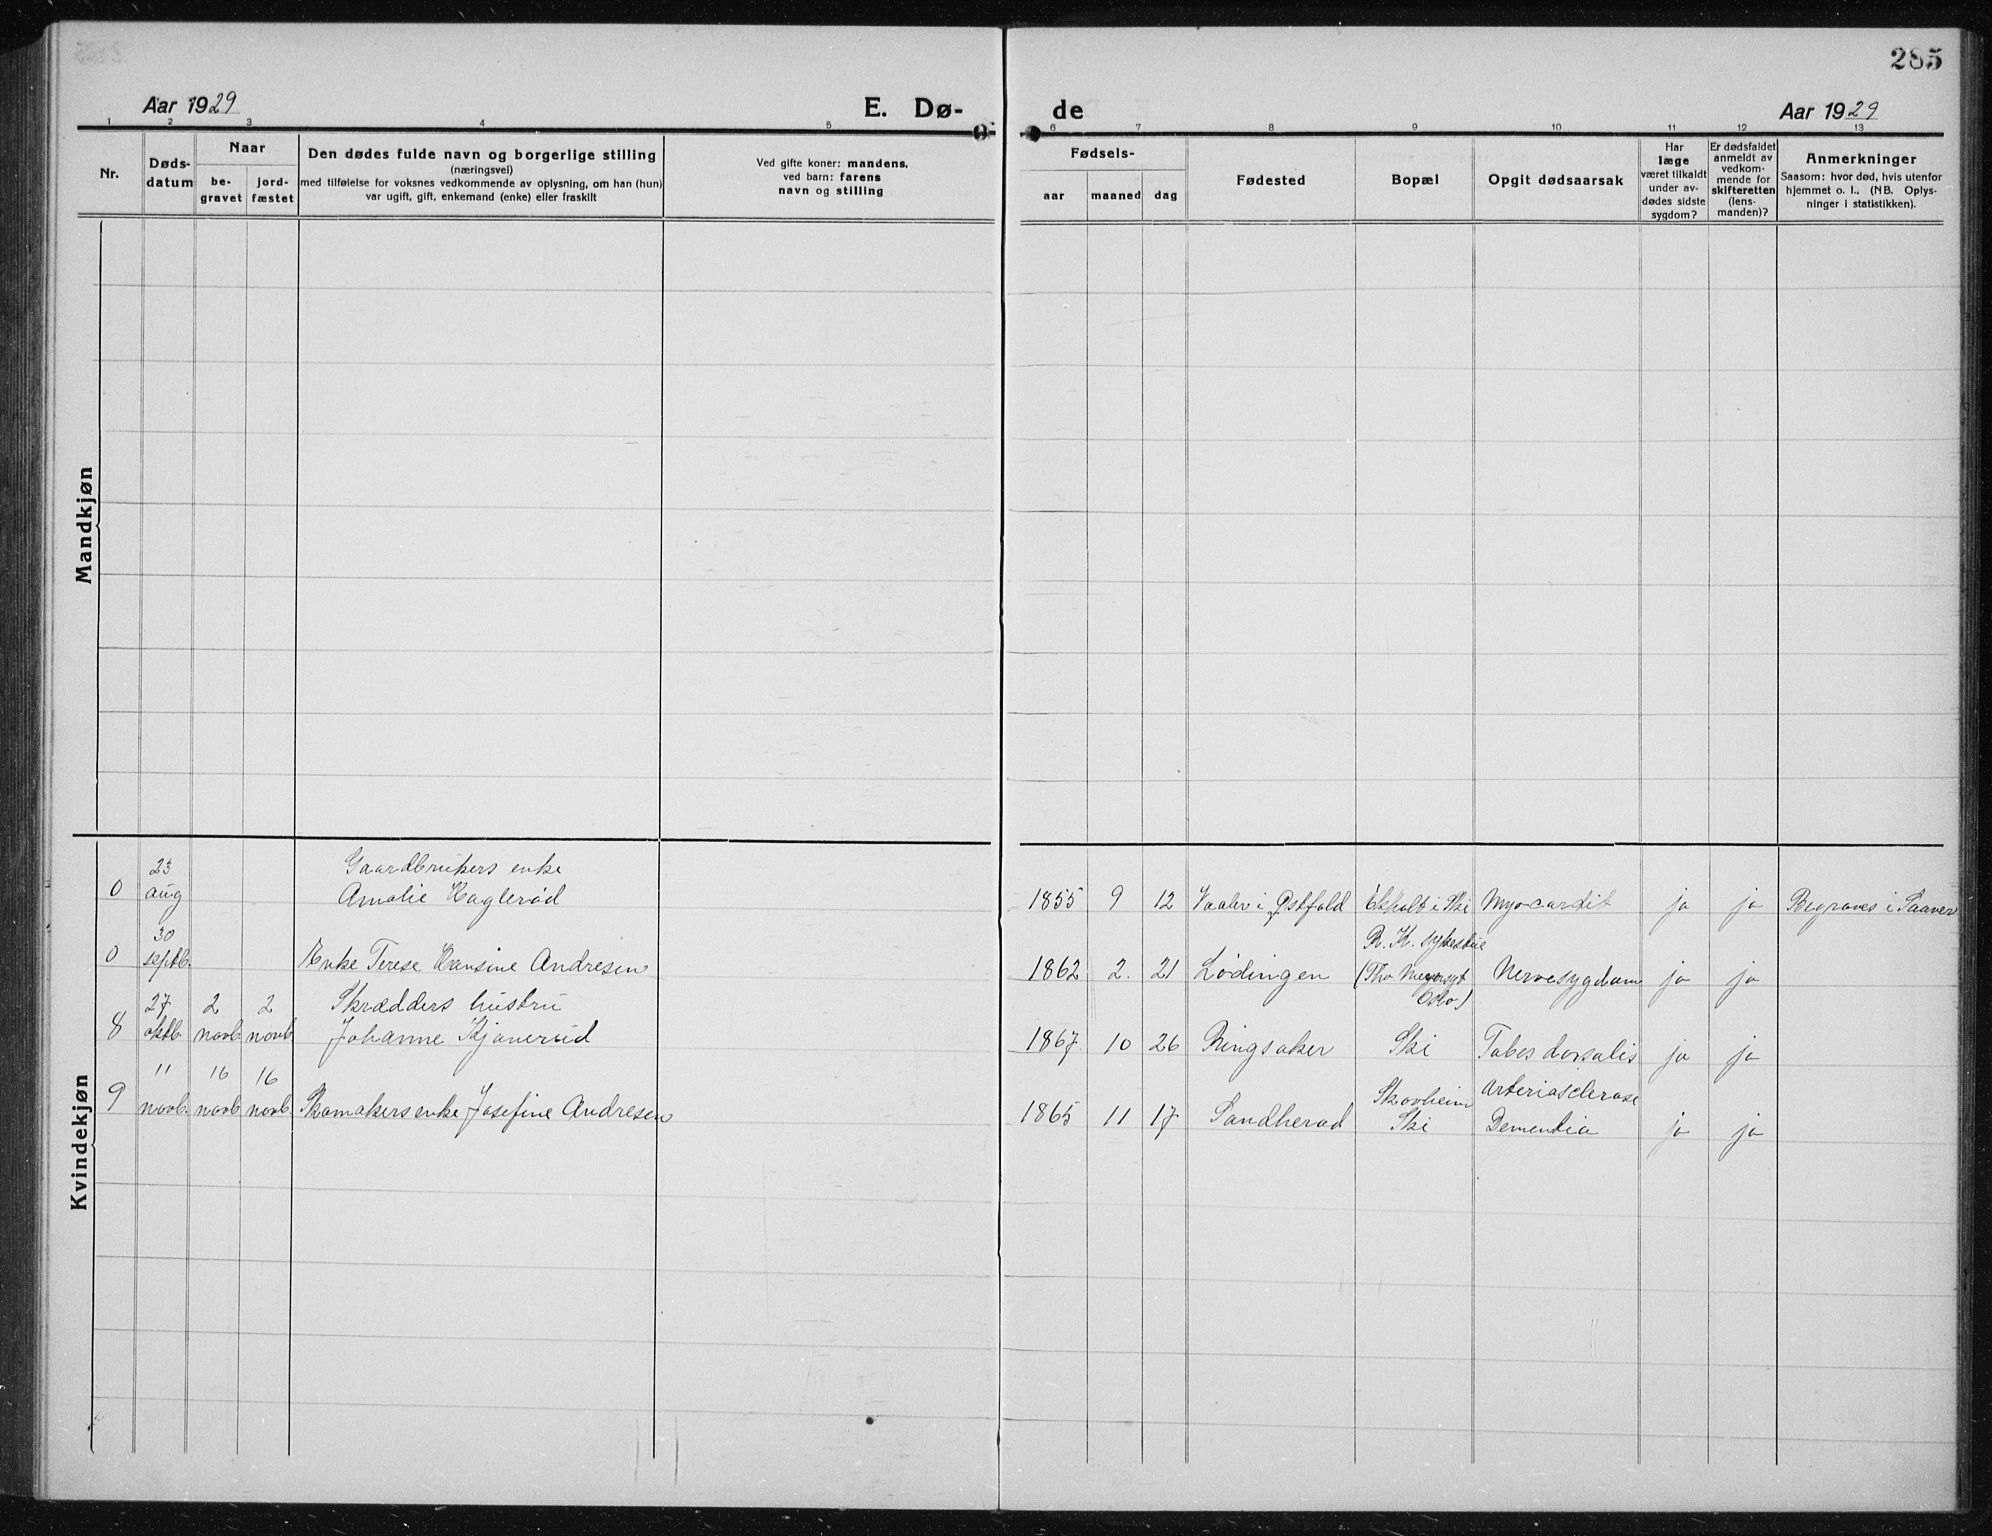 285
Aar 1929
E. Dø-
de
Aar 1929
1 2 3 4 5 6 7 8 9 10 11 12 13
Nr.
Døds-
datum
Naar
be-
gravet
jord-
fæstet
Den dødes fulde navn og borgerlige stilling
(næringsvei)
med tilføielse for voksnes vedkommende av oplysning, om han (hun)
var ugift, gift, enkemand (enke) eller fraskilt
Ved gifte koner: mandens,
ved barn: farens
navn og stilling
Fødsels-
aar
maaned
dag
Fødested
Bopæl
Opgit dødsaarsak
Har
læge
været tilkaldt
under av-
dødes sidste
sygdom?
Er dødsfaldet
anmeldt av
vedkom-
mende for
skifteretten
(lens-
manden)?
Anmerkninger
Saasom: hvor død, hvis utenfor
hjemmet o. l., (NB. Oplys-
ninger i statistikken).
Mandkjøn
Kvindekjøn
23 Gaardbrukers enke
0 aug Amalie Haglerød 1855 9 12 Vaaler i Østfold Ekholt i Ski Myocardit ja ja Begraves i Saaner
30 R. K. sykestue
0 septb. Enke Terese Hansine Andresen 1862 2. 21 Lødingen (Tho. Meyersgt Nervesygdom ja ja
Oslo)
27 2 2 Skrædders hustru
8 oktb. novb. novb. Johanne Kjønerud 1867. 10 26 Ringsaker Ski Tabes dorsalis ja ja
11 16 16 Skovheim Arteriasclerose
9 novb. novb. novb. Skomakers enke Josefine Andresen 1865 11 17 Sandherad Ski Dementia ja ja